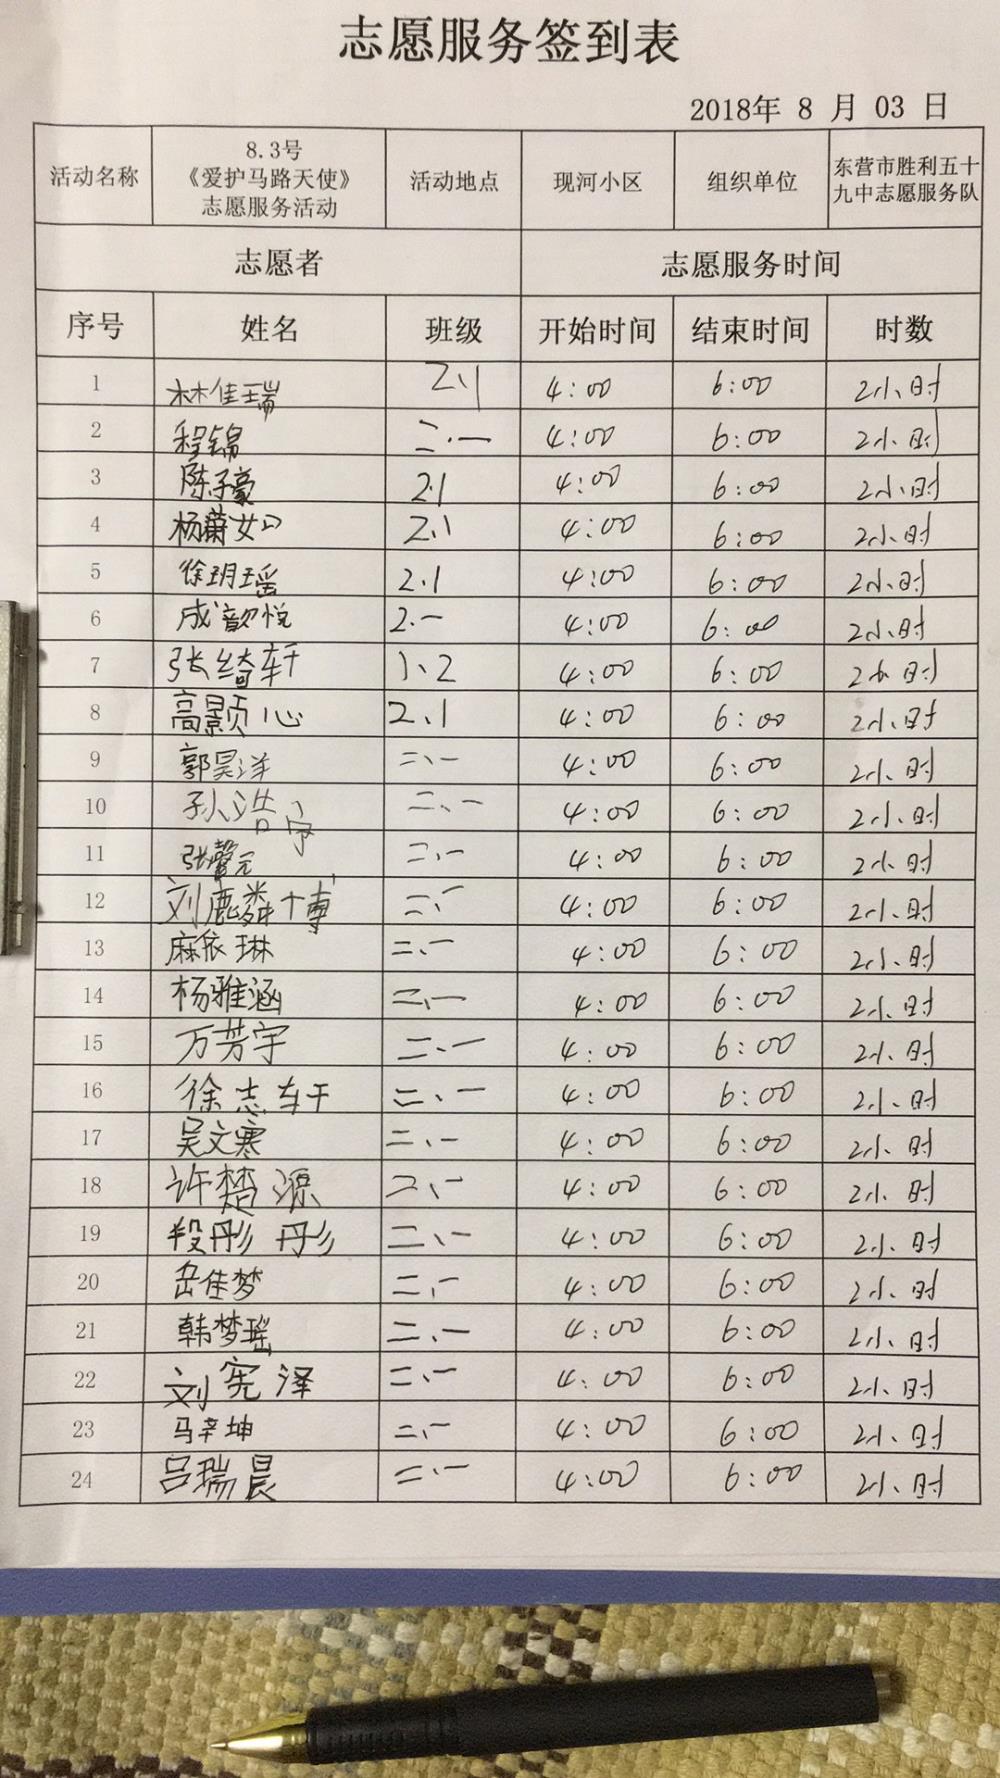 志愿服务签到表
2018年 8 月 03 日
活动名称 8.3号《爱护马路天使》志愿服务活动 活动地点 现河小区 组织单位 东营市胜利五十九中志愿服务队
志愿者 志愿服务时间
序号 姓名 班级 开始时间 结束时间 时数
1 林佳瑞 2.1 4:00 6:00 2小时
2 程锦 二.一 4:00 6:00 2小时
3 陈子豪 2.1 4:00 6:00 2小时
4 杨蔚如 2.1 4:00 6:00 2小时
5 徐玥瑶 2.1 4:00 6:00 2小时
6 成歆悦 2.一 4:00 6:00 2小时
7 张绮轩 1.2 4:00 6:00 2小时
8 高颢心 2.1 4:00 6:00 2小时
9 郭昊洋 二.一 4:00 6:00 2小时
10 孙浩宇 二.一 4:00 6:00 2小时
11 张馨元 二.一 4:00 6:00 2小时
12 刘麟博 二.一 4:00 6:00 2小时
13 麻依琳 二.一 4:00 6:00 2小时
14 杨雅涵 二.一 4:00 6:00 2小时
15 万芳宇 二.一 4:00 6:00 2小时
16 徐志轩 二.一 4:00 6:00 2小时
17 吴文寒 二.一 4:00 6:00 2小时
18 许楚源 二.一 4:00 6:00 2小时
19 段彤彤 二.一 4:00 6:00 2小时
20 岳佳梦 二.一 4:00 6:00 2小时
21 韩梦瑶 二.一 4:00 6:00 2小时
22 刘宪泽 二.一 4:00 6:00 2小时
23 马辛坤 二.一 4:00 6:00 2小时
24 吕瑞晨 二.一 4:00 6:00 2小时